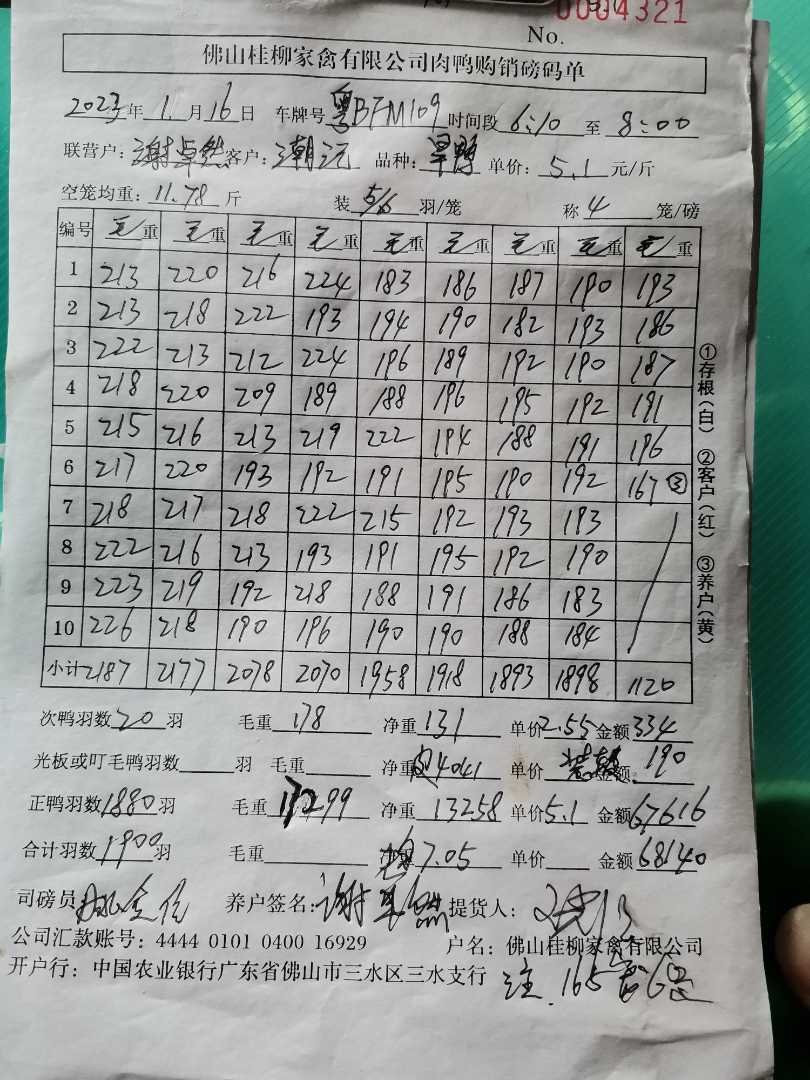 0004321
No.
佛山桂柳家禽有限公司肉鸭购销磅码单
2023年 1 月 16 日 车牌号 粤BFM109 时间段 6:10 至 8:00
联营户: 谢卓然 客户: 潮沅 品种: 旱鸭 单价: 5.1 元/斤
空笼均重: 11.78 斤 装 5/6 羽/笼 称 4 笼/磅
编号 毛重 毛重 毛重 毛重 毛重 毛重 毛重 毛重 毛重
1 213 220 216 224 183 186 187 190 193
2 213 218 222 193 194 190 182 193 186
3 222 213 212 224 196 189 192 190 187
4 218 220 209 189 188 196 195 192 191
5 215 216 213 219 222 194 188 191 196
6 217 220 193 192 191 195 190 192 167 ③
7 218 217 218 222 215 192 193 193
8 222 216 213 193 191 195 192 190
9 223 219 192 218 188 191 186 183
10 226 218 190 196 190 190 188 184
小计 2187 2177 2078 2070 1958 1918 1893 1898 1120
①存根(白) ②客户(红) ③养户(黄)
次鸭羽数 20 羽 毛重 178 净重 131 单价 2.55 金额 334
光板或叮毛鸭羽数 羽 毛重 净重 4041 单价 金额 190
正鸭羽数 1880 羽 毛重 17299 净重 13258 单价 5.1 金额 67616
合计羽数 1900 羽 毛重 7.05 单价 金额 68140
司磅员 养户签名: 谢卓然 提货人:
公司汇款账号: 4444 0101 0400 16929 户名: 佛山桂柳家禽有限公司
开户行: 中国农业银行广东省佛山市三水区三水支行
注. 165